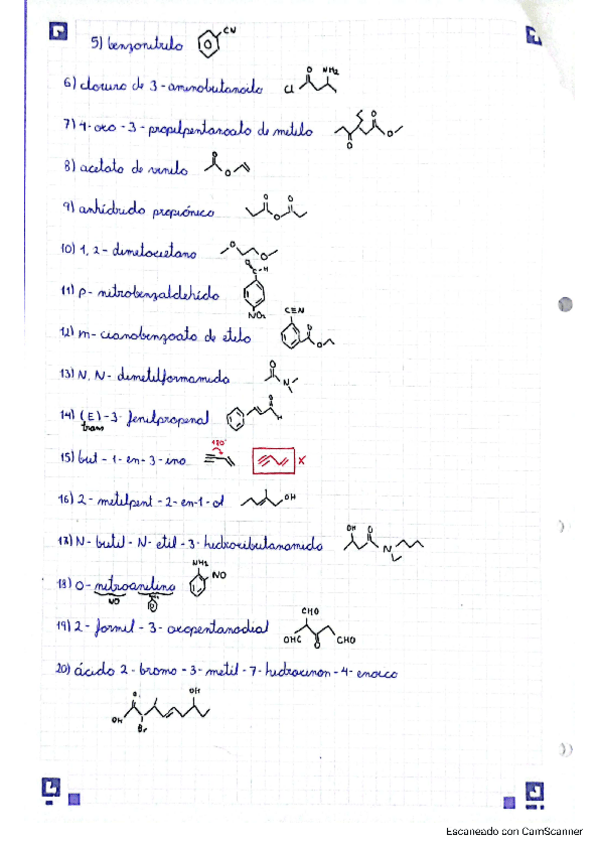 5) benzonitrilo CN
6) cloruro de 3-aminobutanoilo Cl O NH2
7) 4-oxo-3-propilpentanoato de metilo O O O
8) acetato de vinilo O O
9) anhídrido propiónico O O O
10) 1,2-dimetoxietano O O
11) p-nitrobenzaldehído O C-H NO2
12) m-cianobenzoato de etilo C≡N O O
13) N,N-dimetilformamida O N
14) (E)-3-fenilpropenal O H
trans
15) but-1-en-3-ino 180° X
16) 2-metilpent-2-en-1-ol OH
17) N-butil-N-etil-3-hidroxibutanamida OH O N
18) O-nitroanilina NH2 NO
NO
19) 2-formil-3-oxopentanodial CHO OHC O CHO
20) ácido 2-bromo-3-metil-7-hidroxinon-4-enoico
O OH Br OH
Escaneado con CamScanner